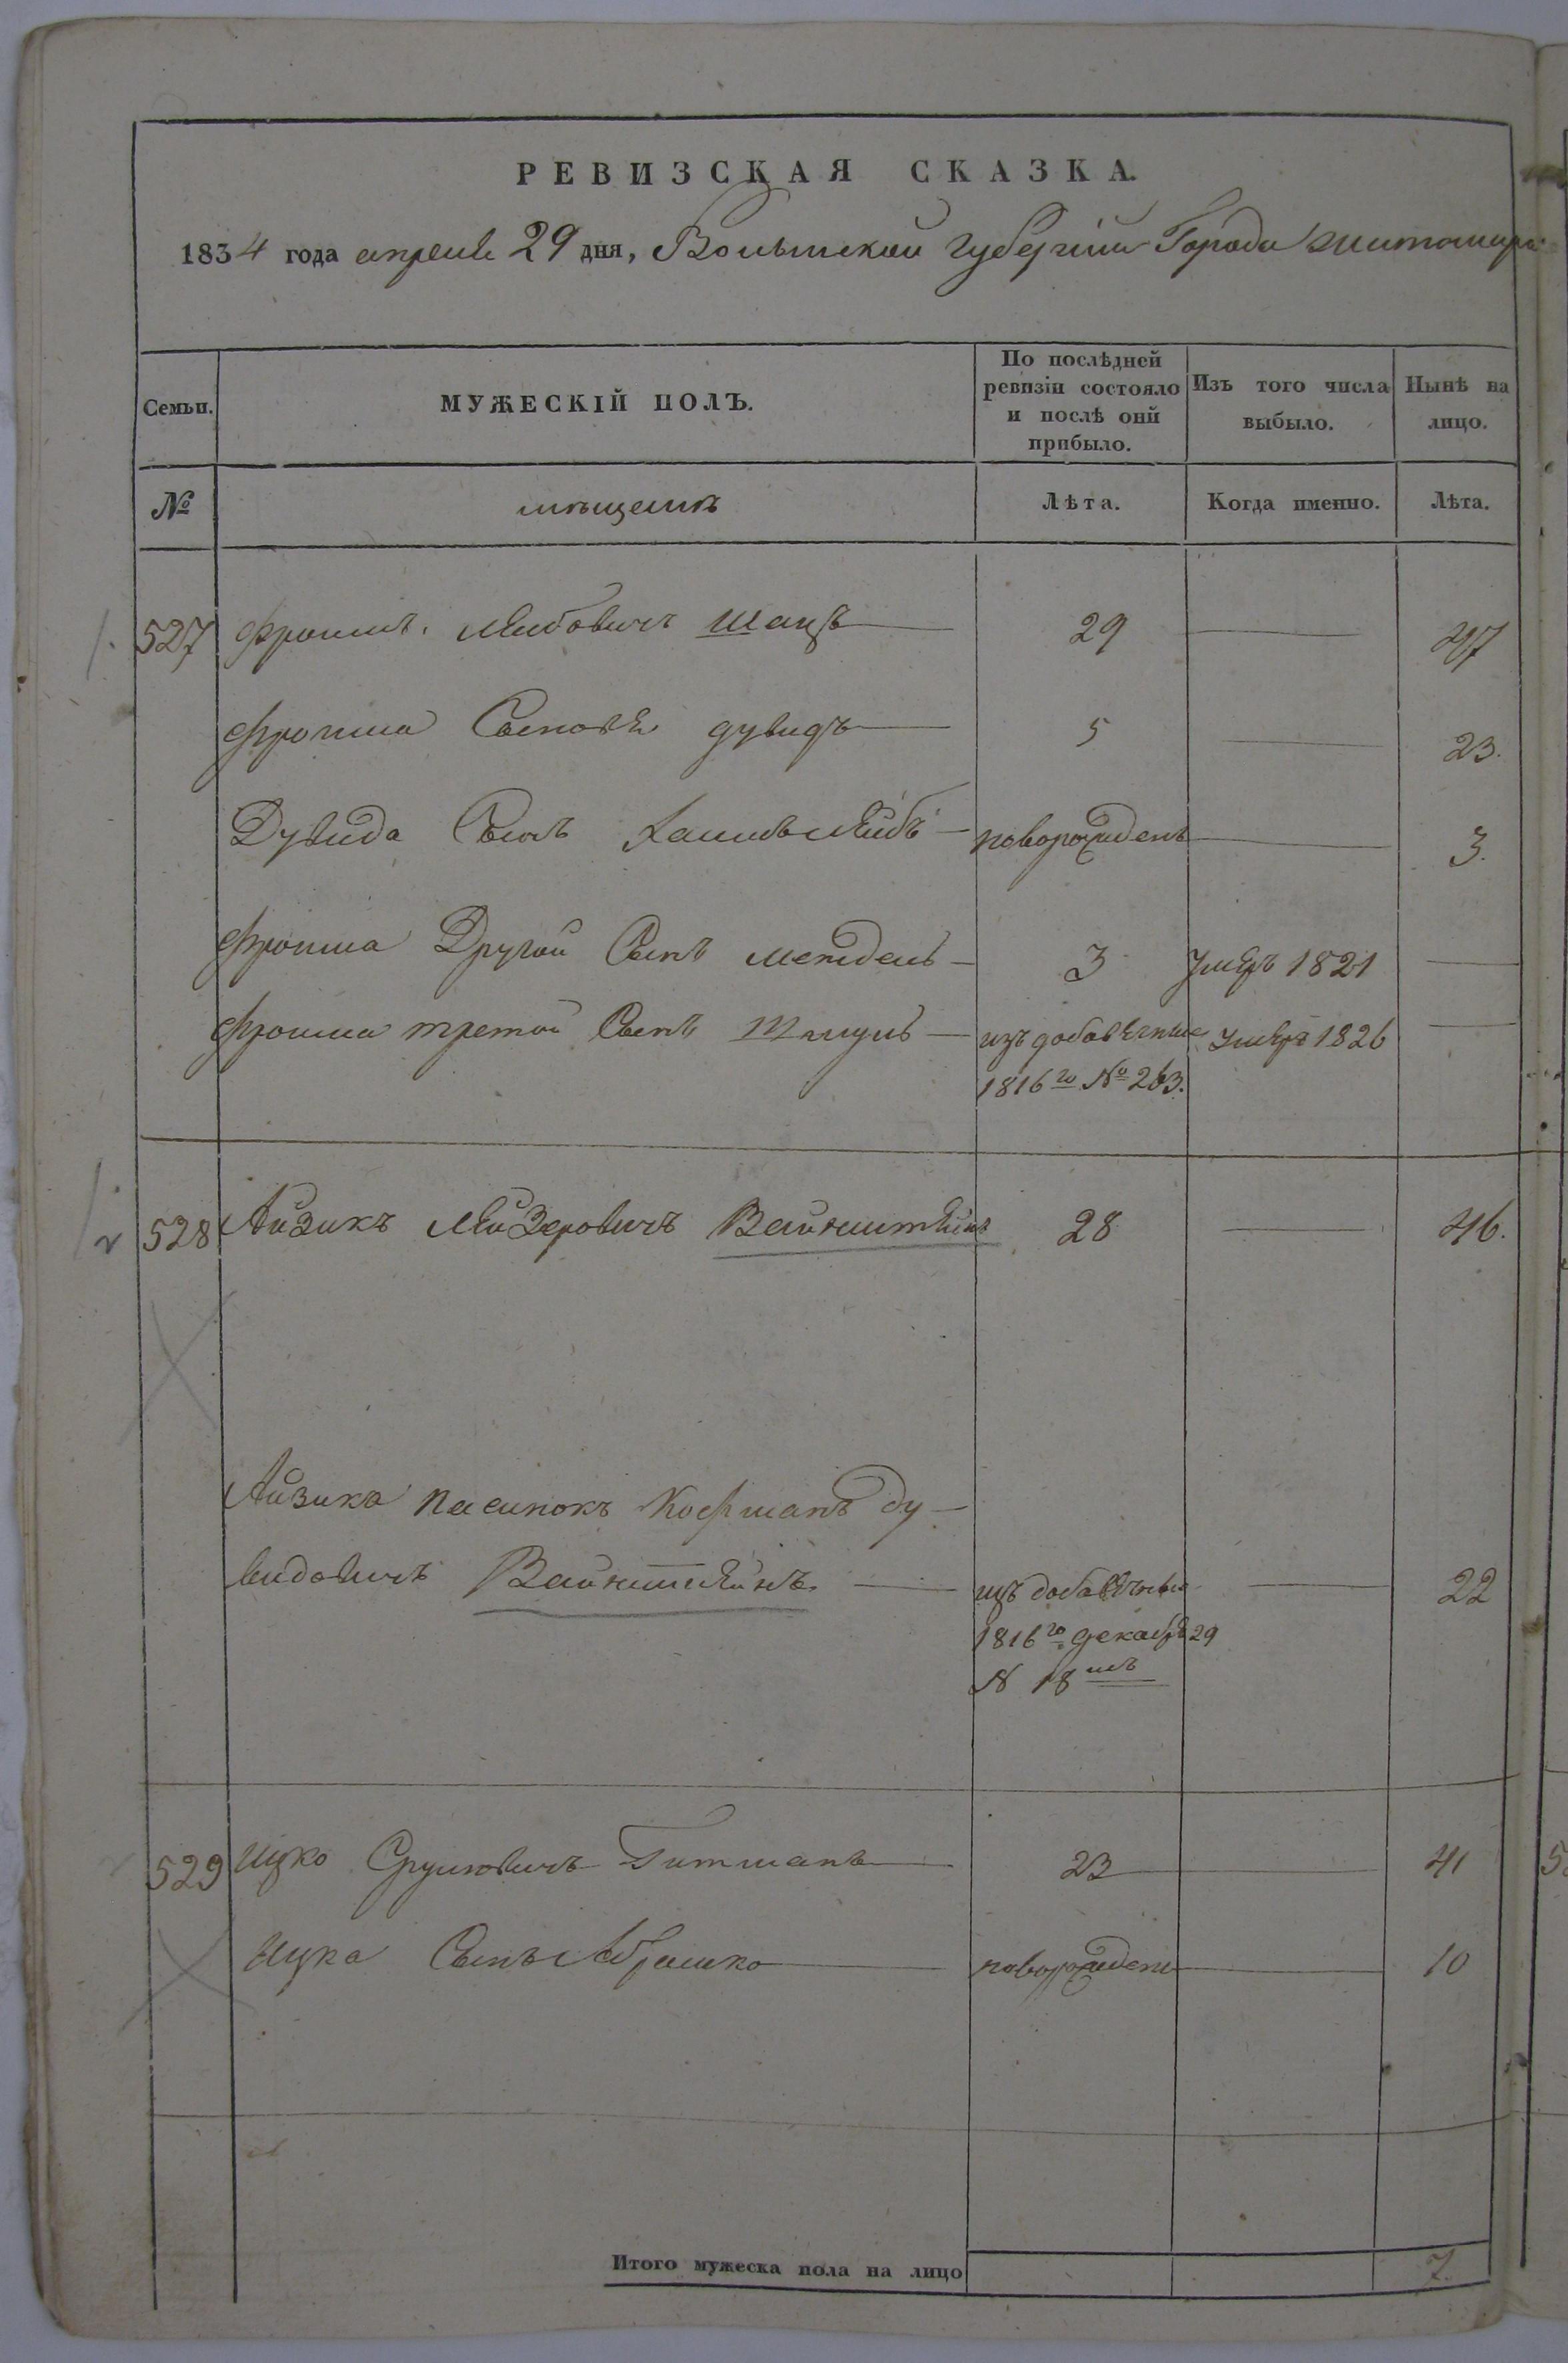 РЕВИЗСКАЯ СКАЗКА.
1834 года апреля 29 дня, Волынской губернии Города Житомира
Семьи. МУЖЕСКІЙ ПОЛЪ. По послѣдней ревизіи состояло и послѣ онй прибыло. Изъ того числа выбыло. Нынѣ на лицо.
№ мѣщанъ Лѣта. Когда именно. Лѣта.
527 Фроимъ Лейбовичъ Шацъ 29 47
Фроима Сыновья дувидъ 5 23.
Дувида Сынъ новорожденъ 3.
Фроима Другой Сынъ мендель 3 Умеръ 1821
Фроима третой Сынъ Шмуль изъ добавочныхъ Умеръ 1826
1816го № 263.
528 Айзикъ Лейзеровичъ Вайнштейнъ 28 46.
Айзика пасинокъ Кофманъ ду-
видовичъ Вайнштейнъ. изъ добавочныхъ 22
1816го декабря 29
N 18мъ
529 Ицко Срулювичъ Гитманъ 23 41
Ицка Сынъ Абрамко новорожденъ 10
Итого мужеска пола на лицо 7.